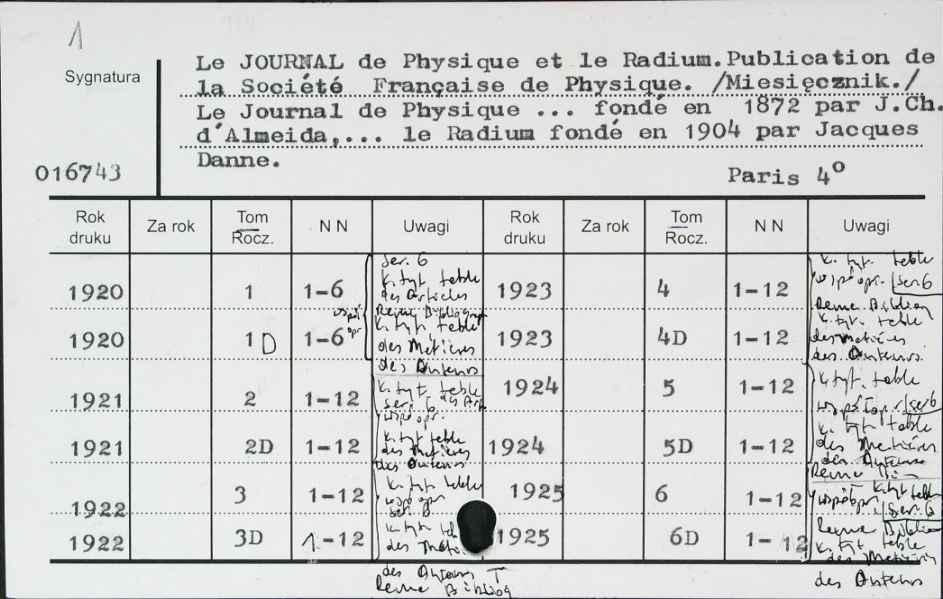 1
Sygnatura
016743
Le JOURNAL de Physique et le Radium.Publication de
la Société Française de Physique. /Miesięcznik./
Le Journal de Physique ... fondé en 1872 par J.Ch.
d'Almeida,... le Radium fondé en 1904 par Jacques
Danne.
Paris 4º
Rok druku Za rok Tom Rocz. N N Uwagi Rok druku Za rok Tom Rocz. N N Uwagi
1920 1 1-6 Ser. 6 k. tyt. table des Articles Revue 1923 4 1-12 k. tyt. table współopr. ser 6 Revue
1920 1D 1-6 współ opr k. tyt. table des Matières des Auteurs 1923 4D 1-12 k. tyt. table des Matières des Auteurs
1921 2 1-12 k. tyt. table ser. 6 współopr. 1924 5 1-12 k. tyt. table współopr. ser 6
1921 2D 1-12 k. tyt table des Matières des Auteurs 1924 5D 1-12 k. tyt. table des Matières des Auteurs Revue
1922 3 1-12 k. tyt table współopr ser. 6 1925 6 1-12 współopr. k. tyt table Ser. 6 Revue
1922 3D 1-12 k. tyt des des Auteurs Revue 1925 6D 1-12 k. tyt table des Matières des Auteurs